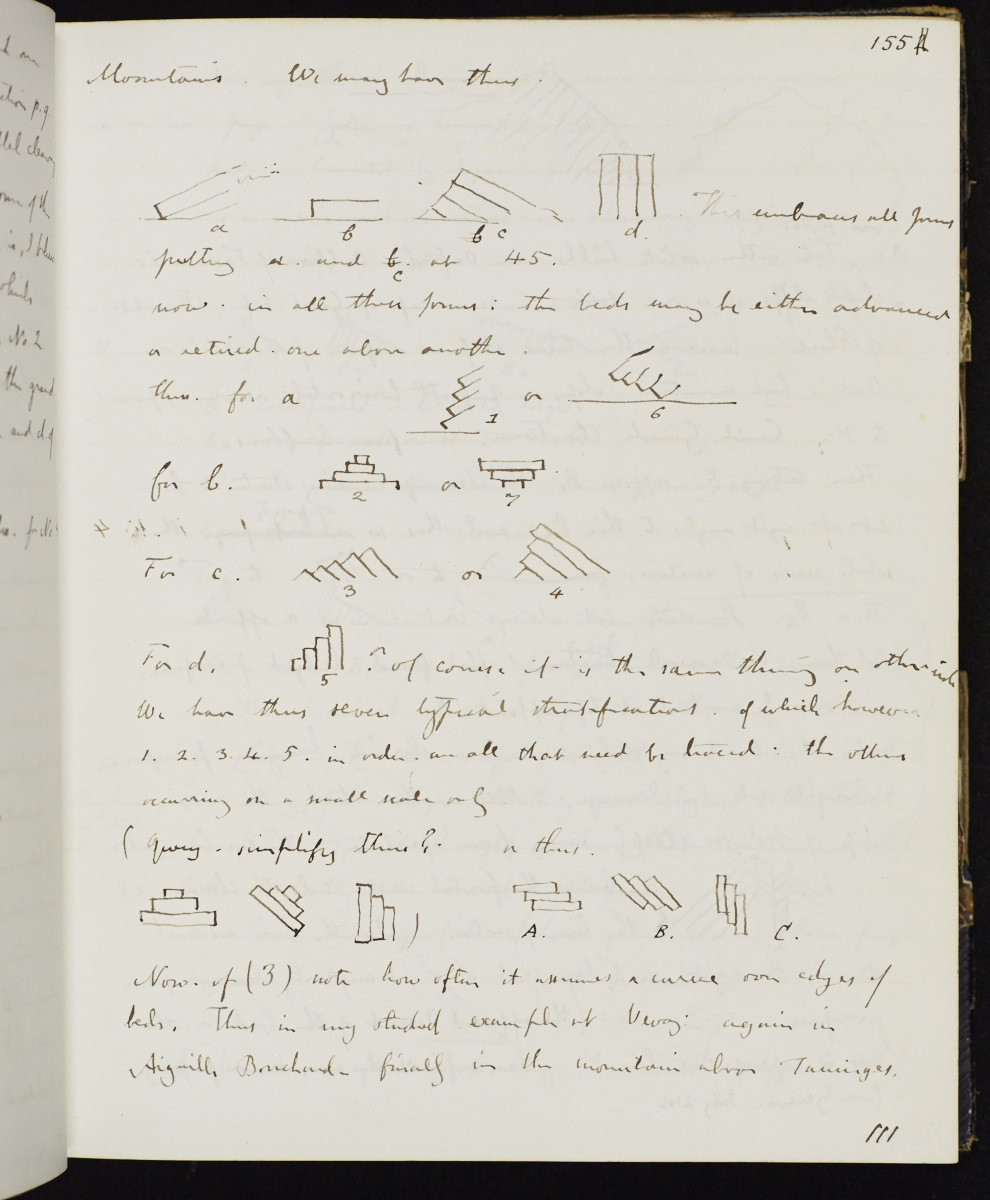 155
Mountains. We may have thus.
a b c d. This embraces all forms
putting a. and c at 45.
now. in all these forms: the beds may be either advanced
or retired. one above another.
thus. for a 1 or 6
for b. 2 or 7
For c. 3 or 4
For d. 5 ? of course it is the same thing on other side
We have thus seven typical stratifications. of which however
1. 2. 3. 4. 5. in order. are all that need be traced: the others
occurring on a small scale only
(Query. simplify thus? or thus.
) A. B. C.
Now. of (3) note how often it assumes a curve over edges of
beds. Thus in my studied example at Vevay: again in
Aiguille Bouchard. finally in the mountain above Taninges.
111